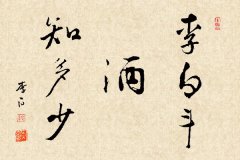 李白斗
酒
知多少